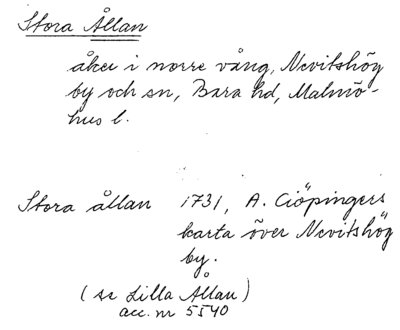 Stora Ållan
åker i norre vång, Nevitshög
by och sn, Bara hd, Malmö-
hus l.
Stora ållan 1731, A. Ciöpingers
karta över Nevitshög
by.
(se Lilla Ållan)
acc. nr 5540